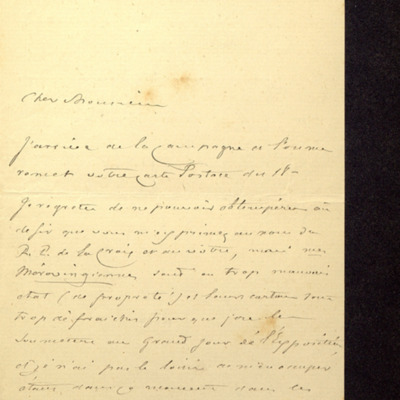 Cher Monsieur
J'arrive de la Campagne et l'on me
remet votre Carte Postale du 18 -
Je regrette de ne pouvoir obtempérer au
désir que vous m'exprimez au nom du
R. P. de la Croix et au vôtre, mais mes
Mérovingiennes sont en trop mauvais
état (de propreté) et leurs cartons sont
trop défraichis pour que j'ose les
soumettre au Grand jour de l'Exposition,
et je n'ai pas le loisir de m'en occuper
étant, en ce moment dans les